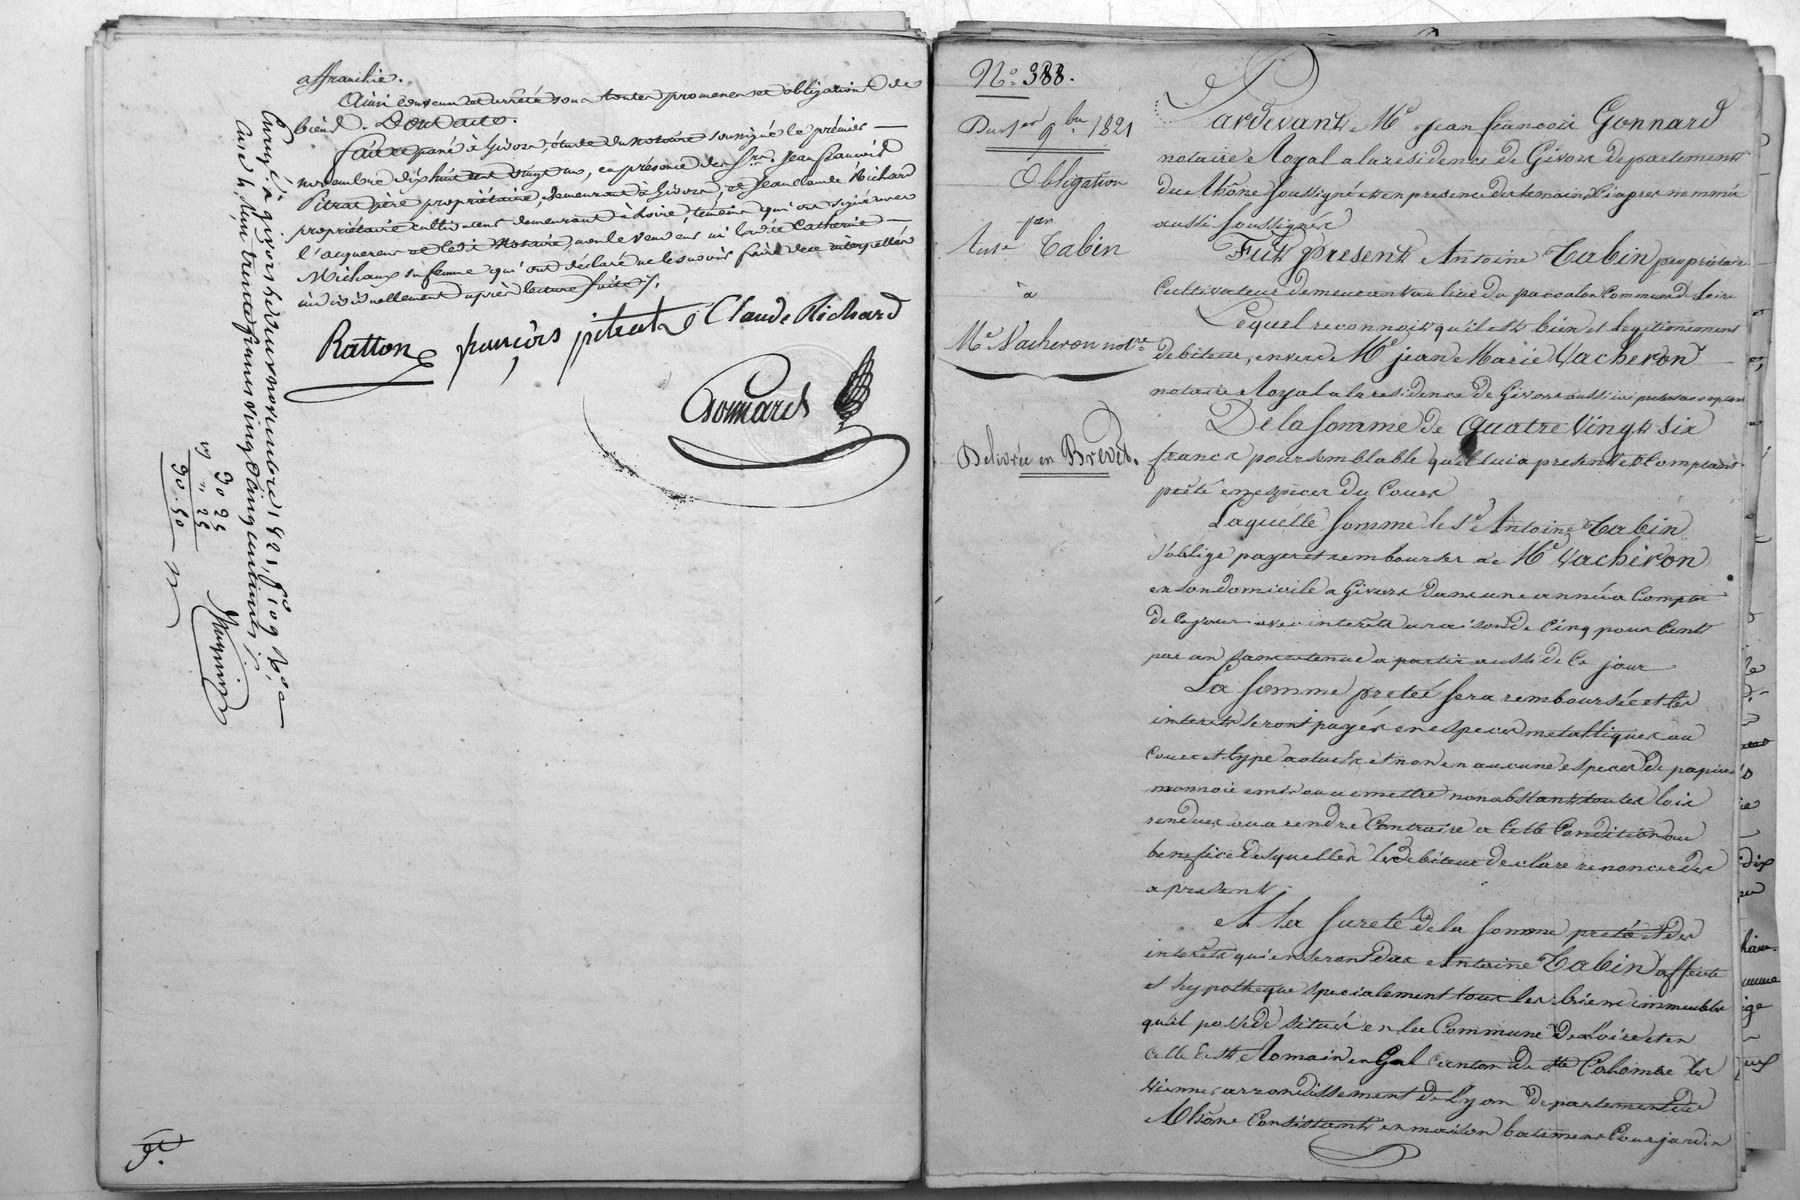 affranchie.
Ainsi convenu et arrêté sous toutes promesses et obligations de
biens. Dont acte.
Fait et passé à Givors, étude du notaire soussigné le premier
novembre dix huit cent vingt un, en présence des Srs. Jean François
Pitrat père propriétaire, demeurant à Givors, et Jean Claude Richard
propriétaire cultivateur demeurant à Loire, témoins qui ont signé avec
l'acquereur et ledit Notaire, non le vendeur ni ladite Catherine
Michaux sa femme qui ont déclaré ne le savoir faire de ce interpellés
individuellement après lecture faite.
Ratton françois pitrat Claude Richard
Gonnard
Enregé à givors le deux novembre 1821, fo 109 Ro
Case 4, Reçu trente francs vingt cinq centimes
30 25
30.50
N° 388.
Du 1er 9bre 1821
Obligation
par
Ante Tabin
à
Me Vacheron notre
Délivrée en Brevet.
Pardevant Me Jean francois Gonnard
notaire Royal a la residence de Givors departement
du Rhône soussigné et en presence des temoins ci apres nommés
aussi soussignés
Fut present Antoine Tabin proprietaire
Cultivateur demeurant au lieu du Commune de Loire
Lequel reconnoit qu'il est bien et legitimement
debiteur, envers Me jean Marie Vacheron
notaire Royal a la residence de Givors aussi ici present acceptant
De la somme de quatre vingt six
francs pour semblable qu'il lui a presentement Comptant
prêté en espèces du Cours
Laquelle somme le Sr Antoine Tabin
s'oblige payer et rembourser a Me Vacheron
en son domicile a Givors dans une année a Compter
de ce jour avec interets a raison de Cinq pour Cent
par an sans retenue a partir aussi de Ce jour
La somme pretée sera remboursée et les
interets seront payés en especes metalliques au
Cours et type actuels et non en aucune espece de papier
monnoie emis ou a emettre nonobstant toutes loix
rendues ou a rendre Contraire a Cette Condition au
benefice desquelles le debiteur declare renoncer des
a present
A la sureté de la somme pretée et des
interets qui en seront dus Antoine Tabin affecte
et hypotheque specialement tous les biens immeubles
qu'il possede situés en la Commune de Loire et en
Celle de St Romain en Gal Canton de Ste Colombe les
vienne arrondissement de Lyon departement du
Rhône Consistants en maison batiment Cour jardin